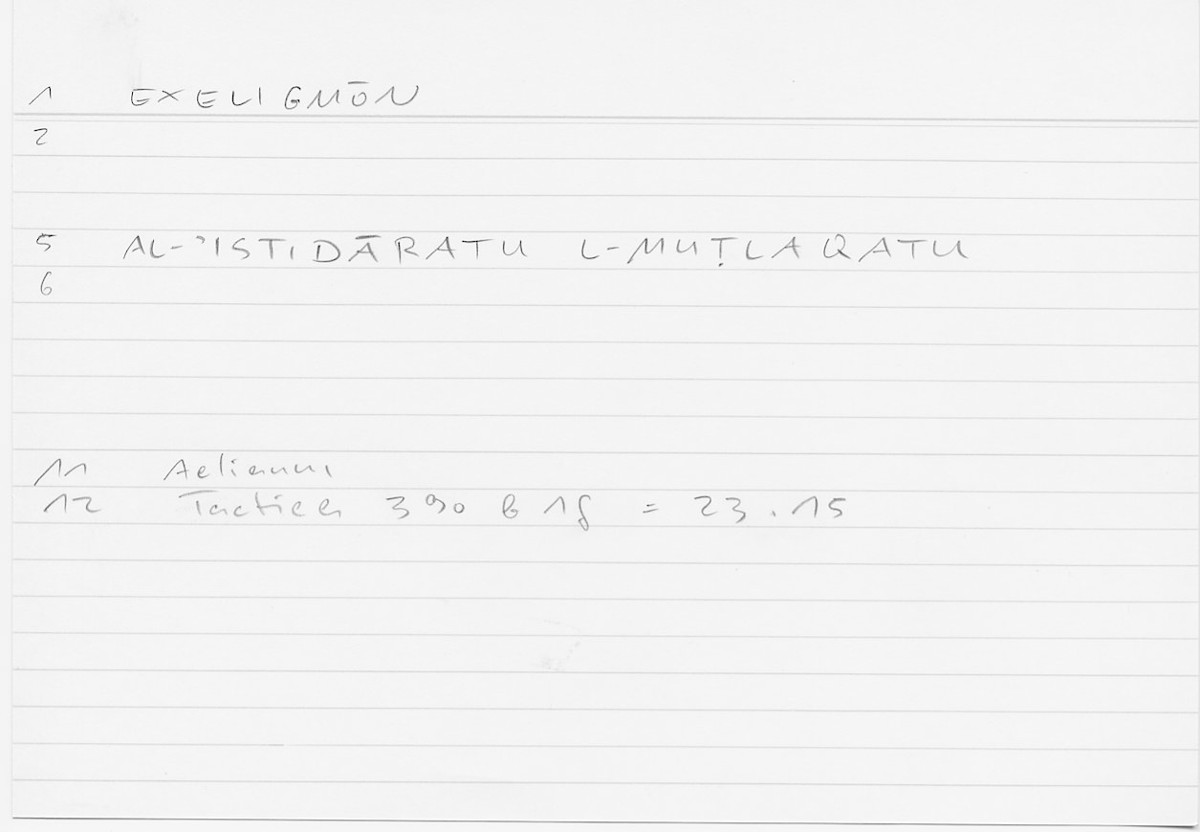 1 EXELIGMŌN
2
5 AL-ʾISTIDĀRATU L-MUṬLAQATU
6
11 Aelianus
12 Tactica 390 b 18 = 23.15